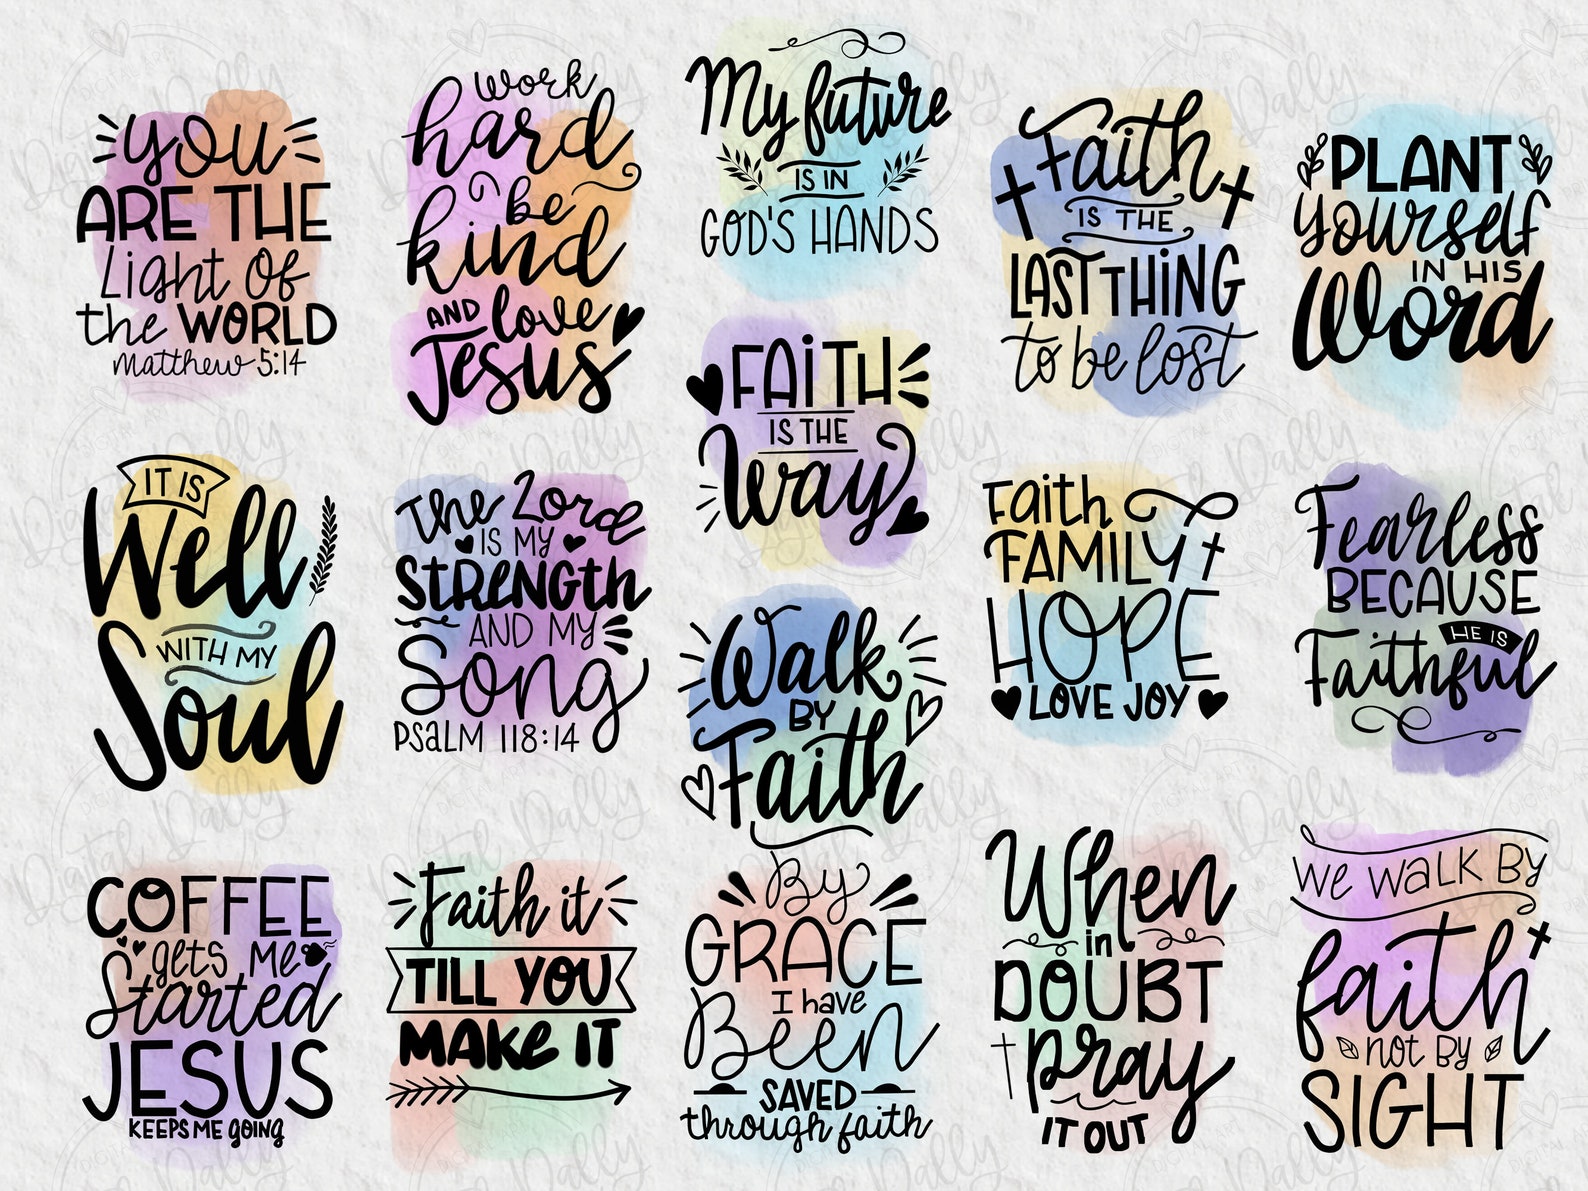 You
ARE THE
Light Of
the WORLD
Matthew 5:14
work
hard
be
kind
AND love
Jesus
My future
IS IN
GOD'S HANDS
Faith
IS THE
LAST THING
to be lost
PLANT
yourself
IN HIS
Word
FAITH
IS THE
Way
IT IS
Well
WITH MY
Soul
The Lord
IS MY
STRENGTH
AND MY
Song
PSALM 118:14
Walk
BY
Faith
Faith
FAMILY
HOPE
LOVE JOY
Fearless
BECAUSE
HE IS
Faithful
COFFEE
gets me
Started
JESUS
KEEPS ME GOING
Faith it
TILL YOU
MAKE IT
By
GRACE
I have
Been
SAVED
through faith
When
in
DOUBT
pray
IT OUT
WE WALK BY
faith
not BY
SIGHT
Digital Dally